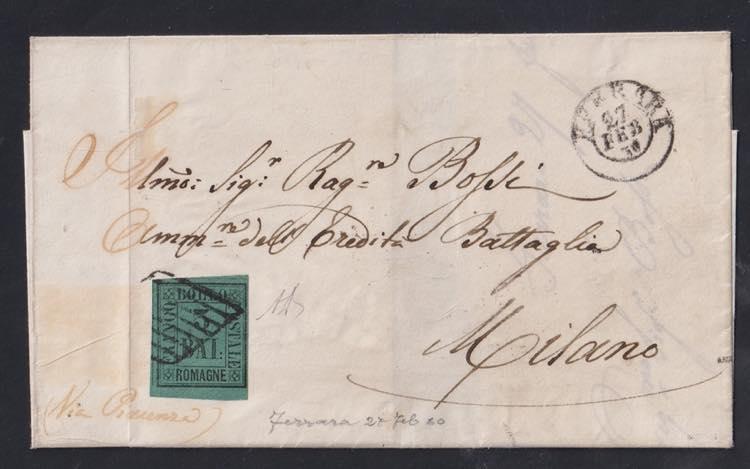 FERRARA
27
FEB
Illmo: Sigr. Ragre Bossi
Ammre dell'Eredità Battaglia
Milano
BOLLO
POSTALE
BAI:
ROMAGNE
(Via Piacenza)
Ferrara 27 Feb 60